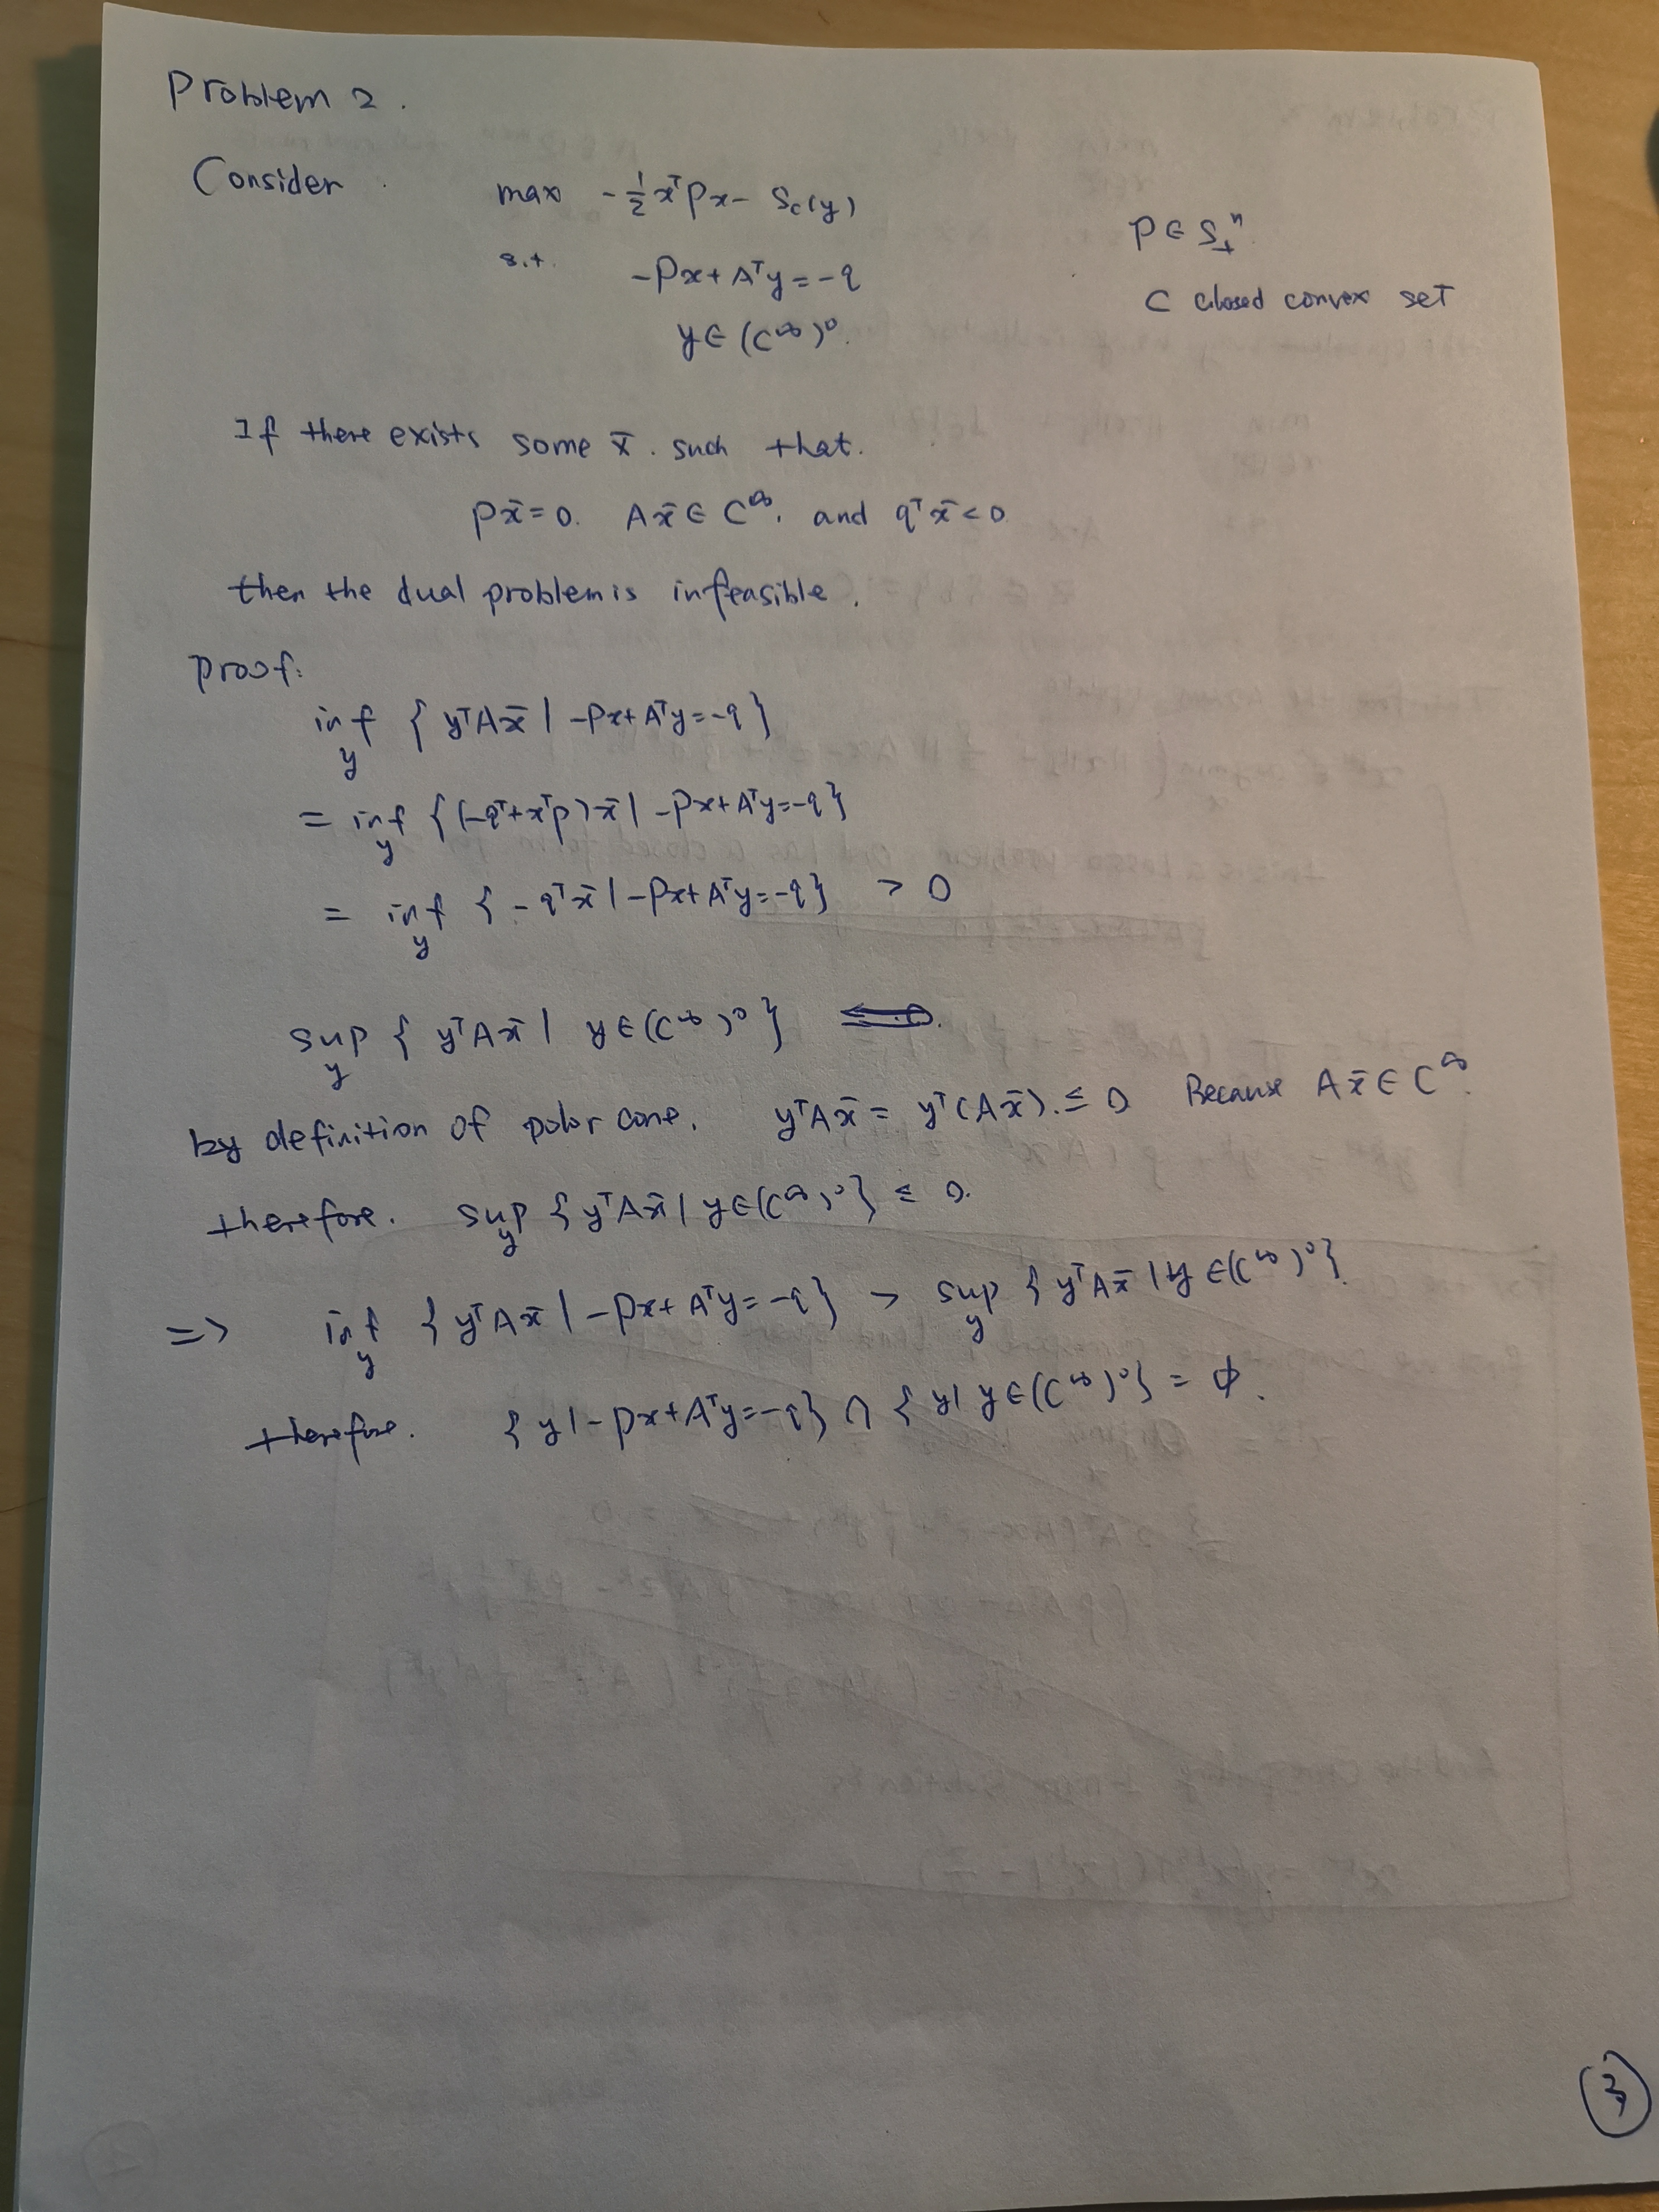 Problem 2.
Consider max -½xᵀPx - S_C(y) P∈S₊ⁿ.
s.t. -Px+Aᵀy=-q C closed convex set
y∈(C^∞)°.
If there exists some x̄. such that.
Px̄=0. Ax̄∈C^∞. and qᵀx̄<0
then the dual problem is infeasible.
Proof:
inf_y {yᵀAx̄ | -Px+Aᵀy=-q}
= inf_y {(-qᵀ+xᵀP)x̄ | -Px+Aᵀy=-q}
= inf_y {-qᵀx̄ | -Px+Aᵀy=-q} > 0
sup_y {yᵀAx̄ | y∈(C^∞)°}
by definition of polar cone. yᵀAx̄ = yᵀ(Ax̄).≤0 Because Ax̄∈C^∞.
therefore. sup_y {yᵀAx̄ | y∈(C^∞)°} ≤ 0.
=> inf_y {yᵀAx̄ | -Px+Aᵀy=-q} > sup_y {yᵀAx̄ | y∈(C^∞)°}.
therefore. {y | -Px+Aᵀy=-q} ∩ {y | y∈(C^∞)°} = ∅.
3